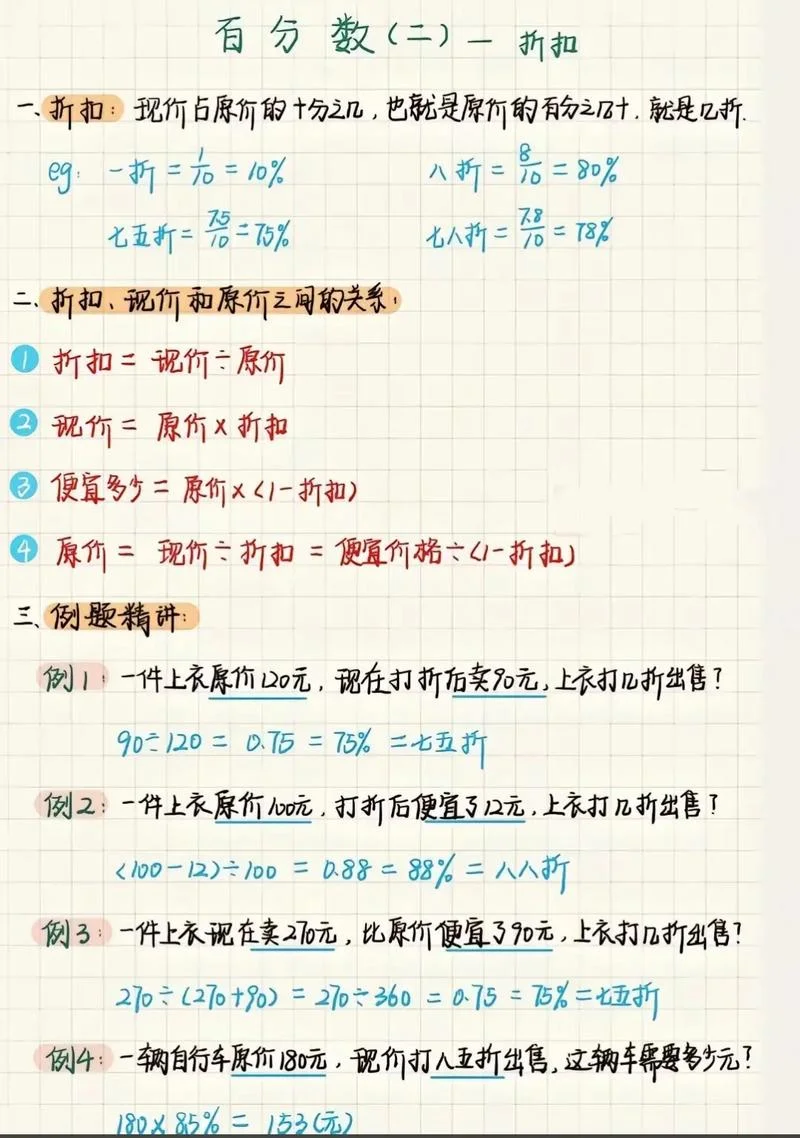 百分数(二)—折扣
一、折扣：现价占原价的十分之几，也就是原价的百分之几十，就是几折.
eg：一折=1/10=10% 八折=8/10=80%
七五折=7.5/10=75% 七八折=7.8/10=78%
二、折扣、现价和原价之间的关系：
① 折扣=现价÷原价
② 现价=原价×折扣
③ 便宜多少=原价×(1-折扣)
④ 原价=现价÷折扣=便宜价格÷(1-折扣)
三、例题精讲：
例1：一件上衣原价120元，现在打折后卖90元，上衣打几折出售？
90÷120=0.75=75%=七五折
例2：一件上衣原价100元，打折后便宜了12元，上衣打几折出售？
(100-12)÷100=0.88=88%=八八折
例3：一件上衣现在卖270元，比原价便宜了90元，上衣打几折出售？
270÷(270+90)=270÷360=0.75=75%=七五折
例4：一辆自行车原价180元，现价打八五折出售，这辆车需要多少元？
180×85%=153(元)